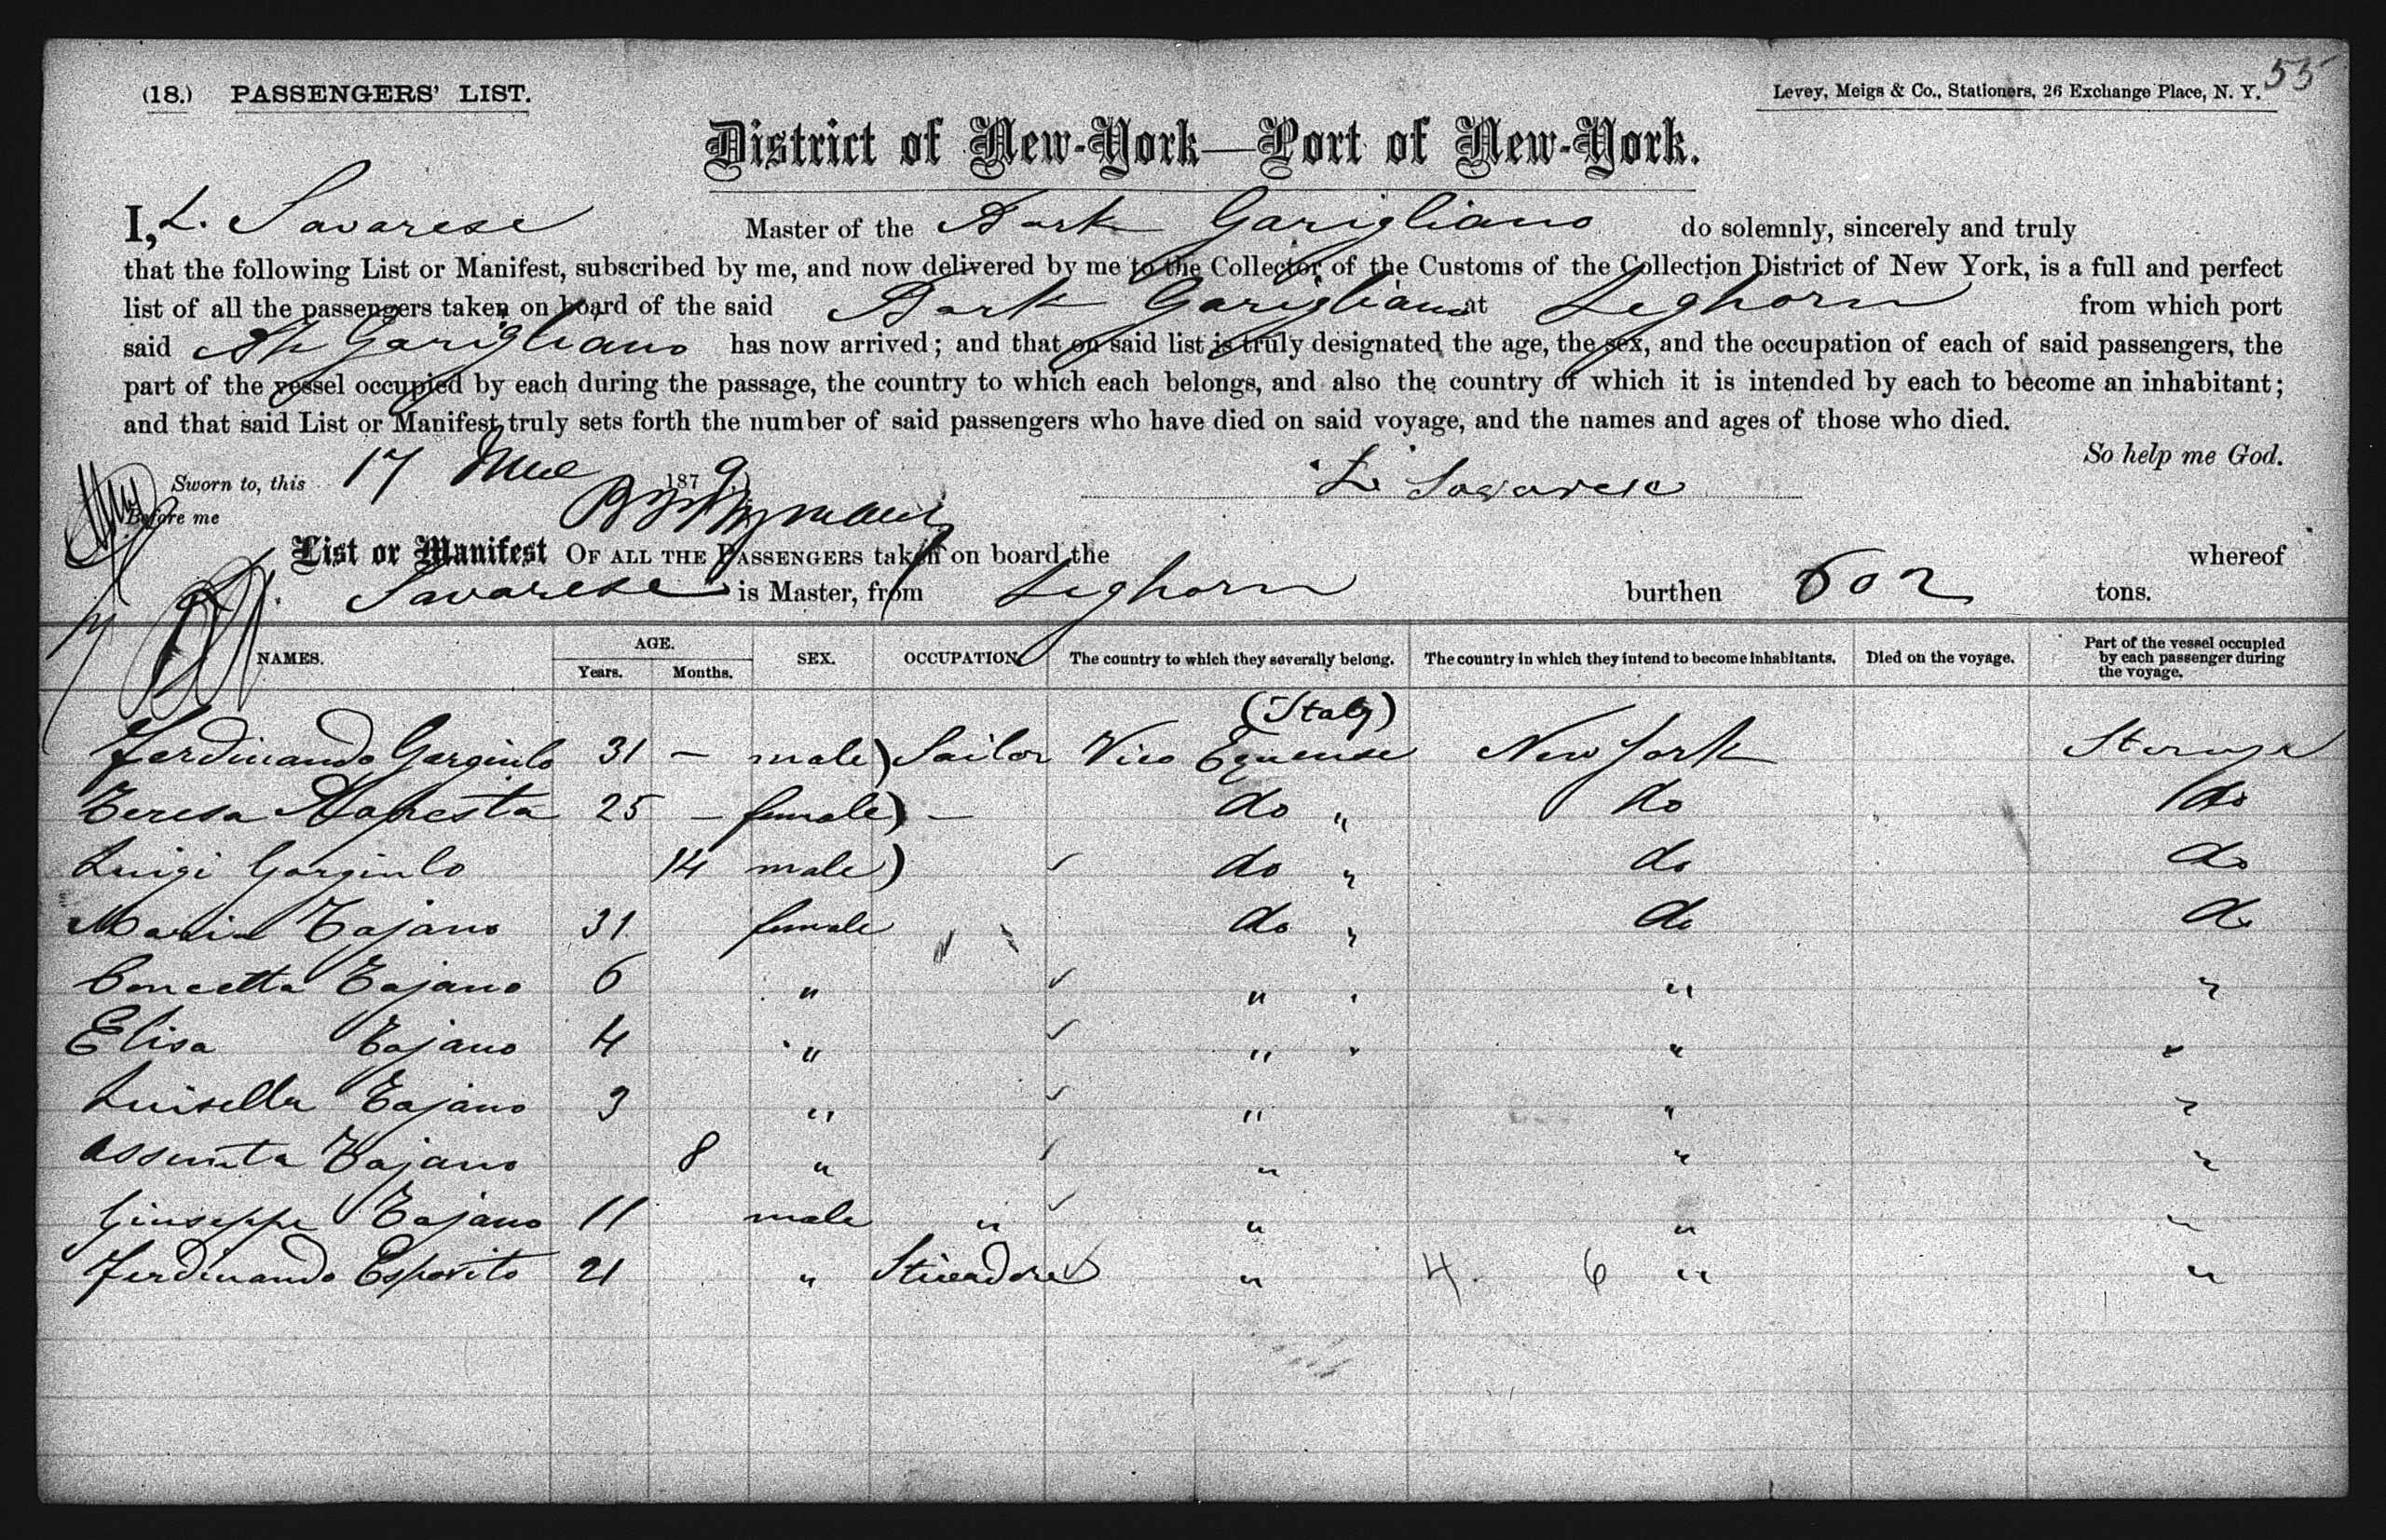 55
(18.) PASSENGERS' LIST.
Levey, Meigs & Co., Stationers, 26 Exchange Place, N. Y.
District of New-York—Port of New-York.
I, L. Savarese Master of the Bark Garigliano do solemnly, sincerely and truly
that the following List or Manifest, subscribed by me, and now delivered by me to the Collector of the Customs of the Collection District of New York, is a full and perfect
list of all the passengers taken on board of the said Bark Garigliano at Leghorn from which port
said Bk Garigliano has now arrived; and that on said list is truly designated the age, the sex, and the occupation of each of said passengers, the
part of the vessel occupied by each during the passage, the country to which each belongs, and also the country of which it is intended by each to become an inhabitant;
and that said List or Manifest truly sets forth the number of said passengers who have died on said voyage, and the names and ages of those who died.
So help me God.
Sworn to, this 17 1879
L. Savarese
Before me
List or Manifest OF ALL THE PASSENGERS taken on board the whereof
Savarese is Master, from Leghorn burthen 602 tons.
NAMES. AGE. Years. Months. SEX. OCCUPATION. The country to which they severally belong. The country in which they intend to become inhabitants. Died on the voyage. Part of the vessel occupied by each passenger during the voyage.
(Italy)
Ferdinando Gargiulo 31 — male) Sailor Vico Equense New York Sterage
Teresa Aapresta 25 — female) — do " do do
Luigi Gargiulo 14 male) do " do do
Maria Tajano 31 female do " do do
Concetta Tajano 6 " " " "
Elisa Tajano 4 " " " "
Luisella Tajano 3 " " " "
Assunta Tajano 8 " " " "
Giuseppe Tajano 11 male " " " "
Ferdinando Esposito 21 " Stivadore " 4 6 " "